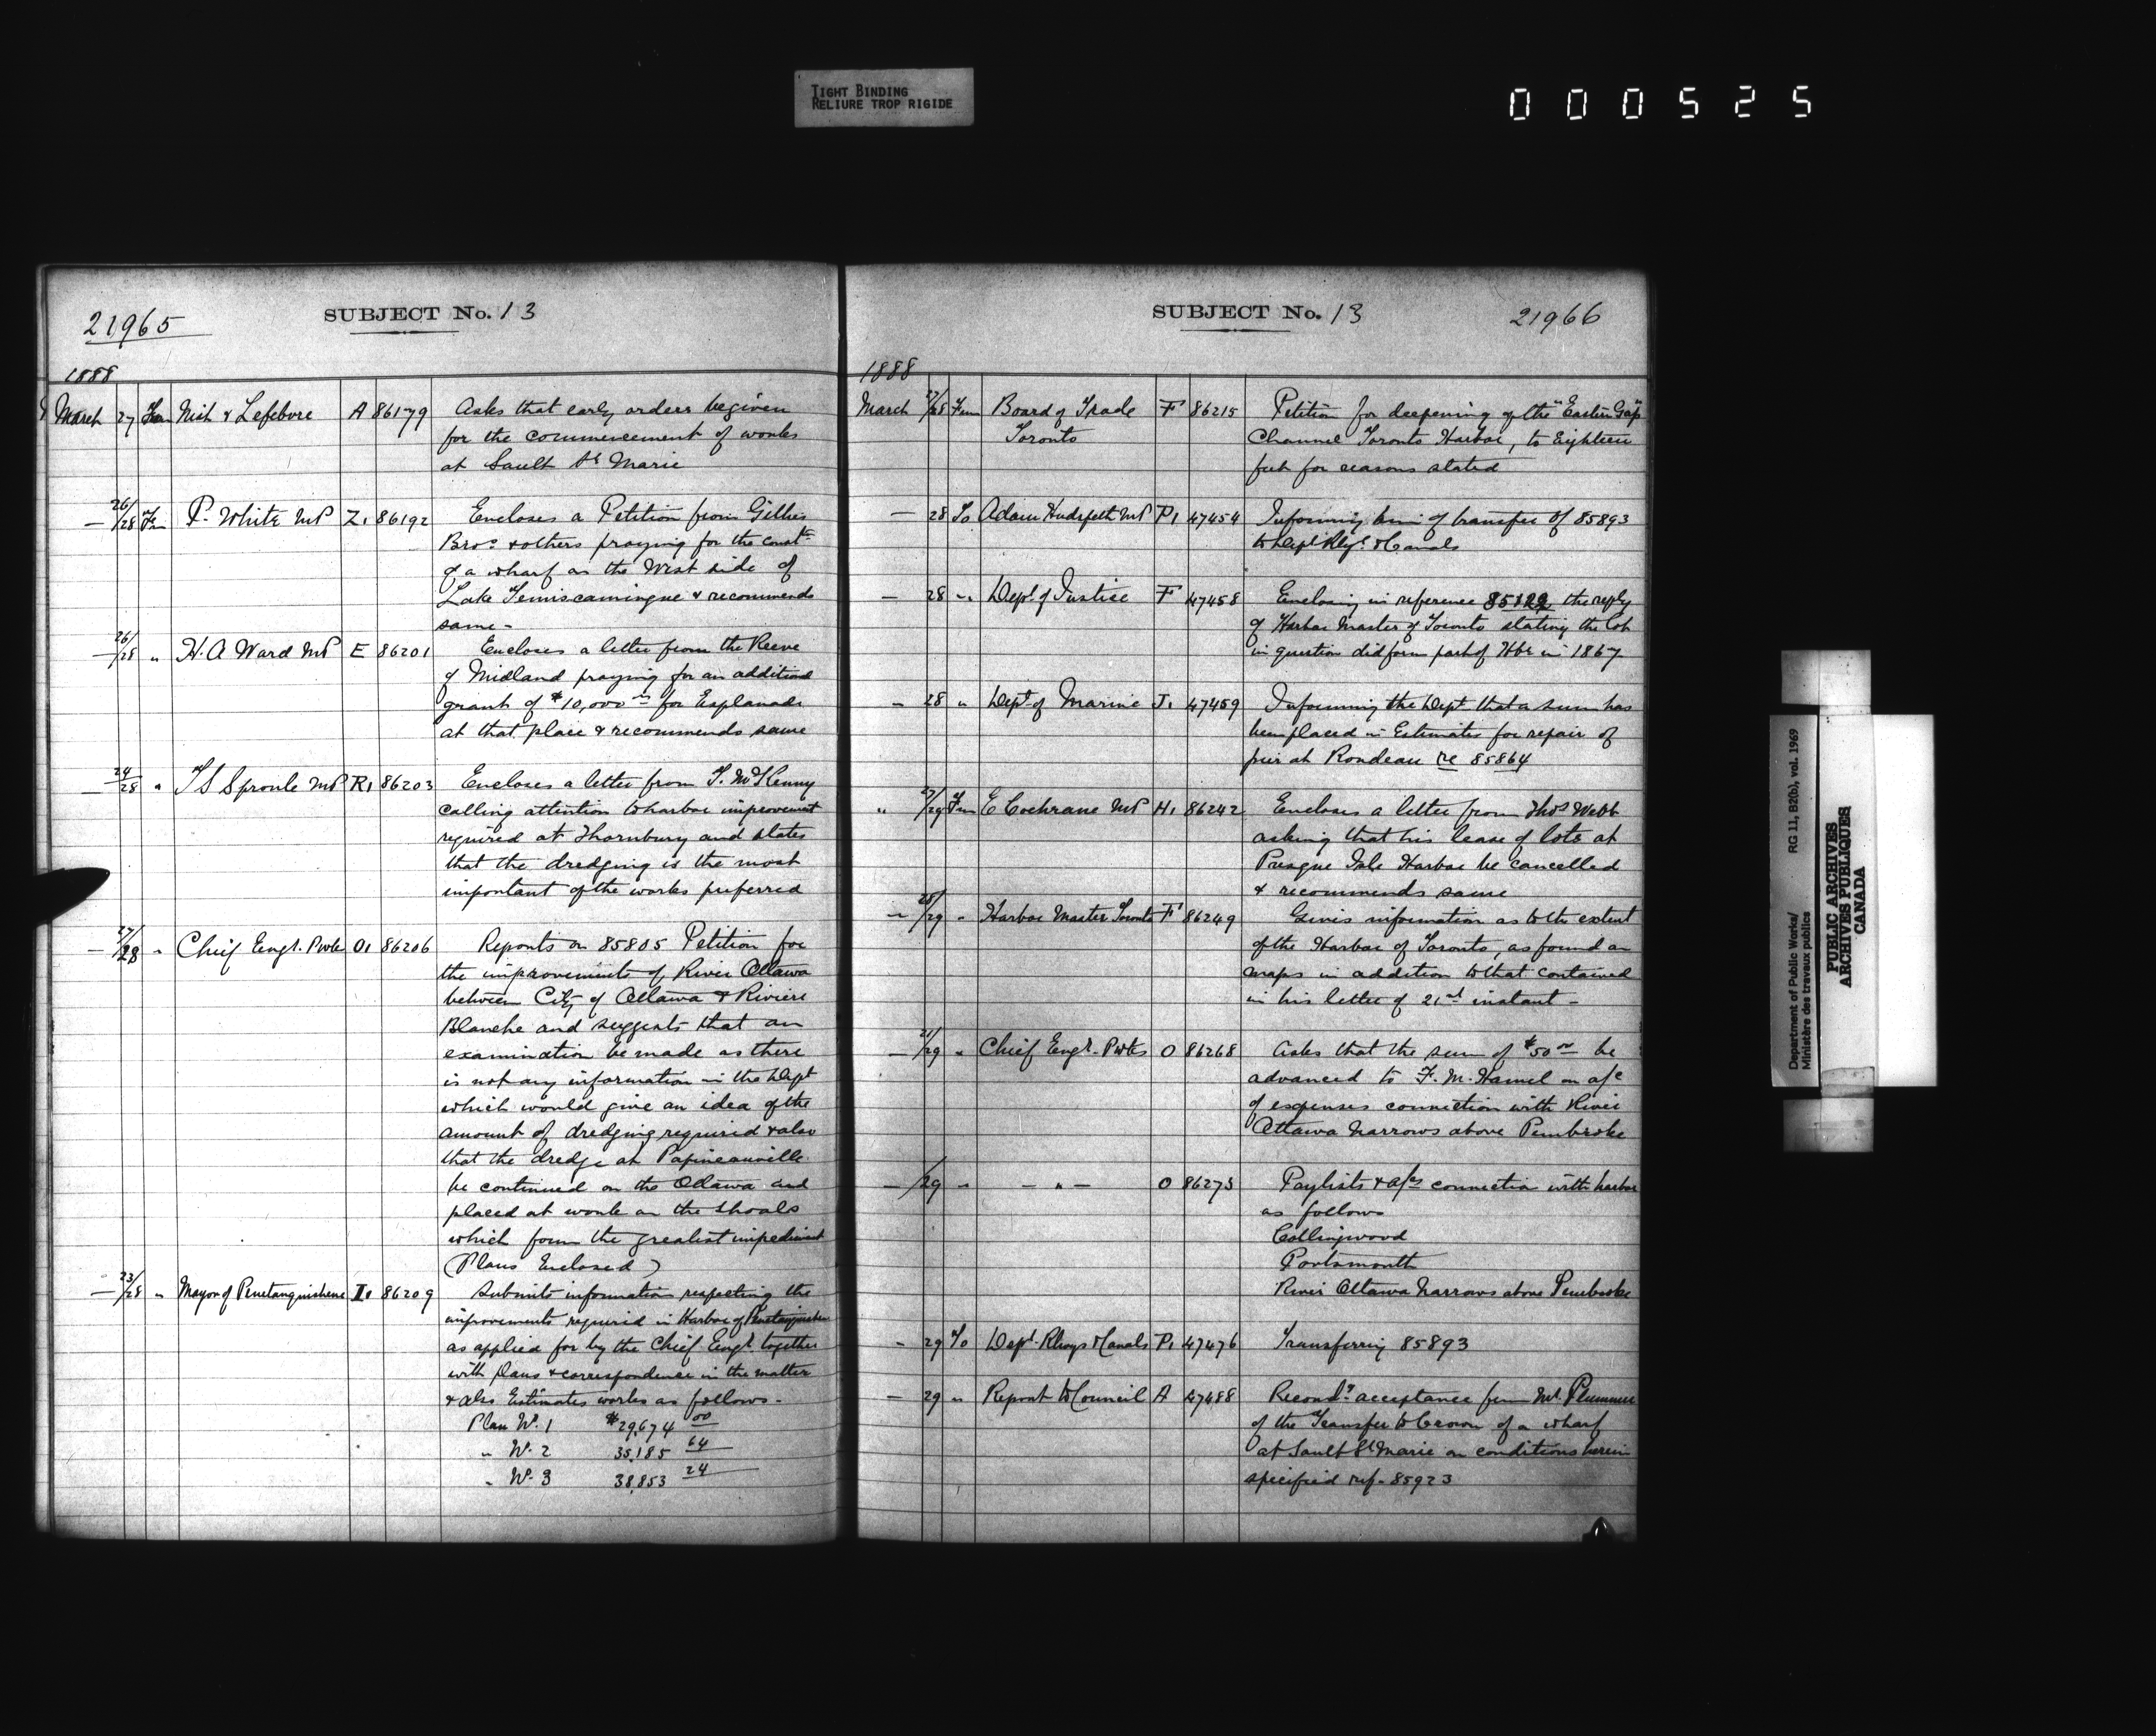 TIGHT BINDING
RELIURE TROP RIGIDE
000525
21965
SUBJECT No. 13
1888
March 27 From Nish & Lefebvre A 86179 Asks that early orders be given
for the commencement of works
at Sault Ste Marie
— 26/28 Fm P. White MP Z1 86192 Encloses a Petition from Gillies
Bros & others praying for the constn
of a wharf on the West side of
Lake Temiscamingue & recommends
same -
— 26/28 " H. A Ward MP E 86201 Encloses a letter from the Reeve
of Midland praying for an additional
grant of $10,000 00 for Esplanade
at that place & recommends same
— 24/28 " T S Sproule MP R1 86203 Encloses a letter from T. McKenny
calling attention to harbor improvement
required at Thornbury and states
that the dredging is the most
important of the works preferred
— 27/28 " Chief Engr. Pwks O1 86206 Reports on 85805 Petition for
the improvements of River Ottawa
between City of Ottawa & Riviere
Blanche and suggests that an
examination be made as there
is not any information in the Dept
which would give an idea of the
amount of dredging required & also
that the dredge at Papineauville
be continued on the Ottawa and
placed at work on the shoals
which form the greatest impediment
(Plans Enclosed)
— 23/28 " Mayor of Penetanguishene I1 86209 Submits information respecting the
improvements required in Harbor of Penetanguishene
as applied for by the Chief Engr. together
with plans & correspondence in the matter
& also Estimates works as follows -
Plan No. 1 $29,674 00
" No. 2 35,185 64
" No. 3 38,853 24
SUBJECT No. 13
21966
1888
March 27/28 From Board of Trade F 86215 Petition for deepening of the "Eastern Gap"
Toronto Channel Toronto Harbor, to Eighteen
feet for reasons stated
— 28 To Adam Hudspeth MP P1 47454 Informing him of transfer of 85893
to Dept Rlys. & Canals
— 28 " Dept. of Justice F 47458 Enclosing in reference 85122 the reply
of Harbor Master of Toronto stating the lot
in question did form part of Hbr in 1867
" 28 " Dept. of Marine J1 47459 Informing the Dept. that a sum has
been placed in Estimates for repair of
pier at Rondeau re 85864
" 27/29 From E Cochrane MP H1 86242 Encloses a letter from Thos Webb
asking that his lease of lots at
Presque Isle Harbor be cancelled
& recommends same
— 28/29 " Harbor Master Toronto F 86249 Gives information as to the extent
of the Harbor of Toronto, as found on
maps in addition to that contained
in his letter of 21st instant -
— 21/29 " Chief Engr. Pwks O 86268 Asks that the sum of $50 00 be
advanced to F. M. Hamel on a/c
of expenses connection with River
Ottawa Narrows above Pembroke
— /29 " — " — O 86273 Paylists & a/cs connection with harbor
as follows
Collingwood
Portsmouth
River Ottawa Narrows above Pembroke
- 29 To Dept. Rlways & Canals P1 47476 Transferring 85893
— 29 " Report to Council A 47488 Recomdg acceptance from Mr. Plummer
of the Transfer to Crown of a wharf
at Sault St Marie on conditions herein
specified ref - 85923
Department of Public Works/ RG 11, B2(b), vol. 1969
Ministère des travaux publics
PUBLIC ARCHIVES
ARCHIVES PUBLIQUES
CANADA